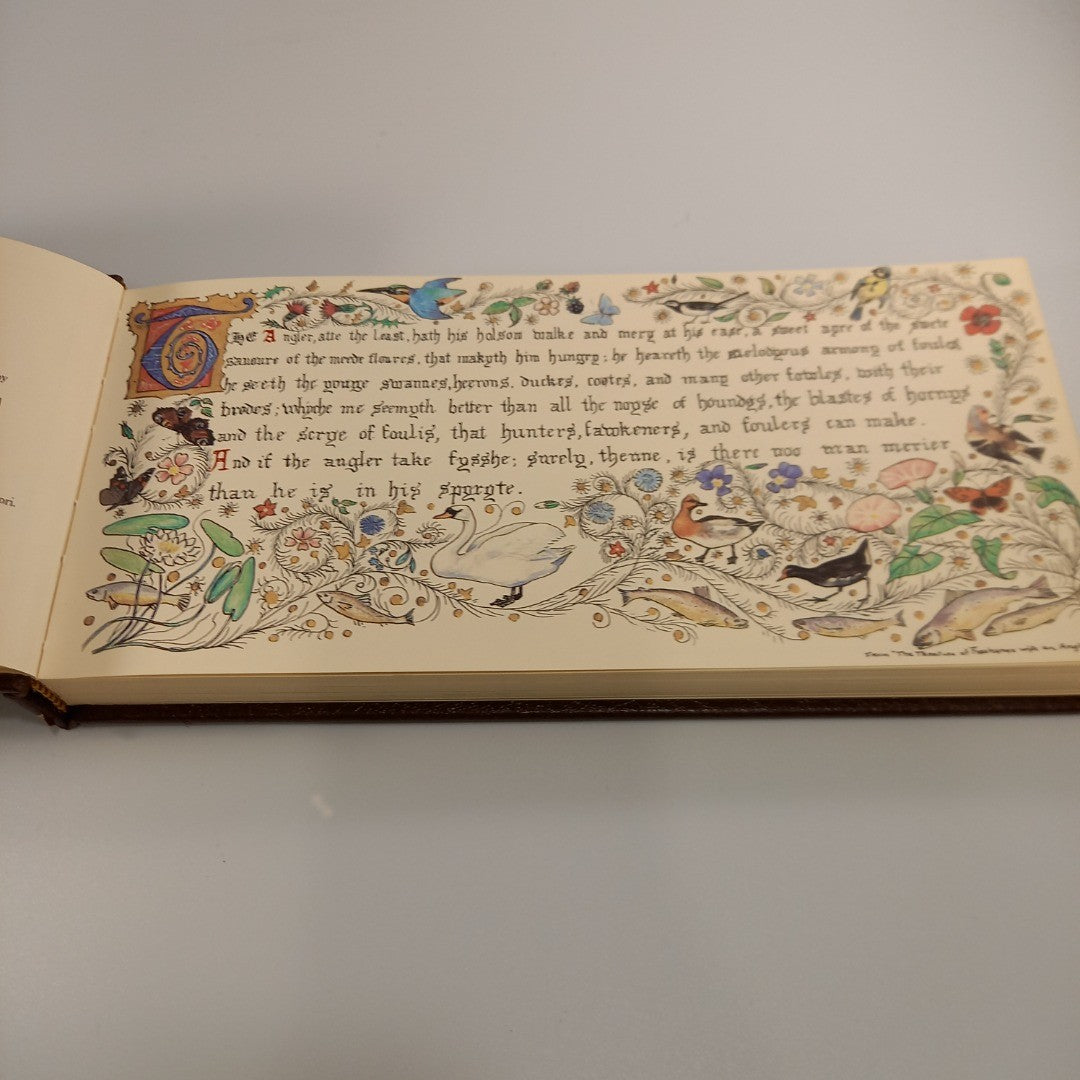 y
ori,
The Angler, atte the least, hath his holsom walke and mery at his ease, a sweet ayre of the swete
savoure of the meede floures, that makyth him hungry; he heareth the melodyous armony of foules
he seeth the younge swannes, heerons, duckes, cootes, and many other fowles, with their
brodes; whyche me seemyth better than all the noyse of houndys, the blastes of hornys
and the scrye of foulis, that hunters, fawkeners, and foulers can make.
And if the angler take fysshe; surely, thenne, is there noo man merier
than he is in his spyryte.
From "The Treatise of Fysshynge with an Angl